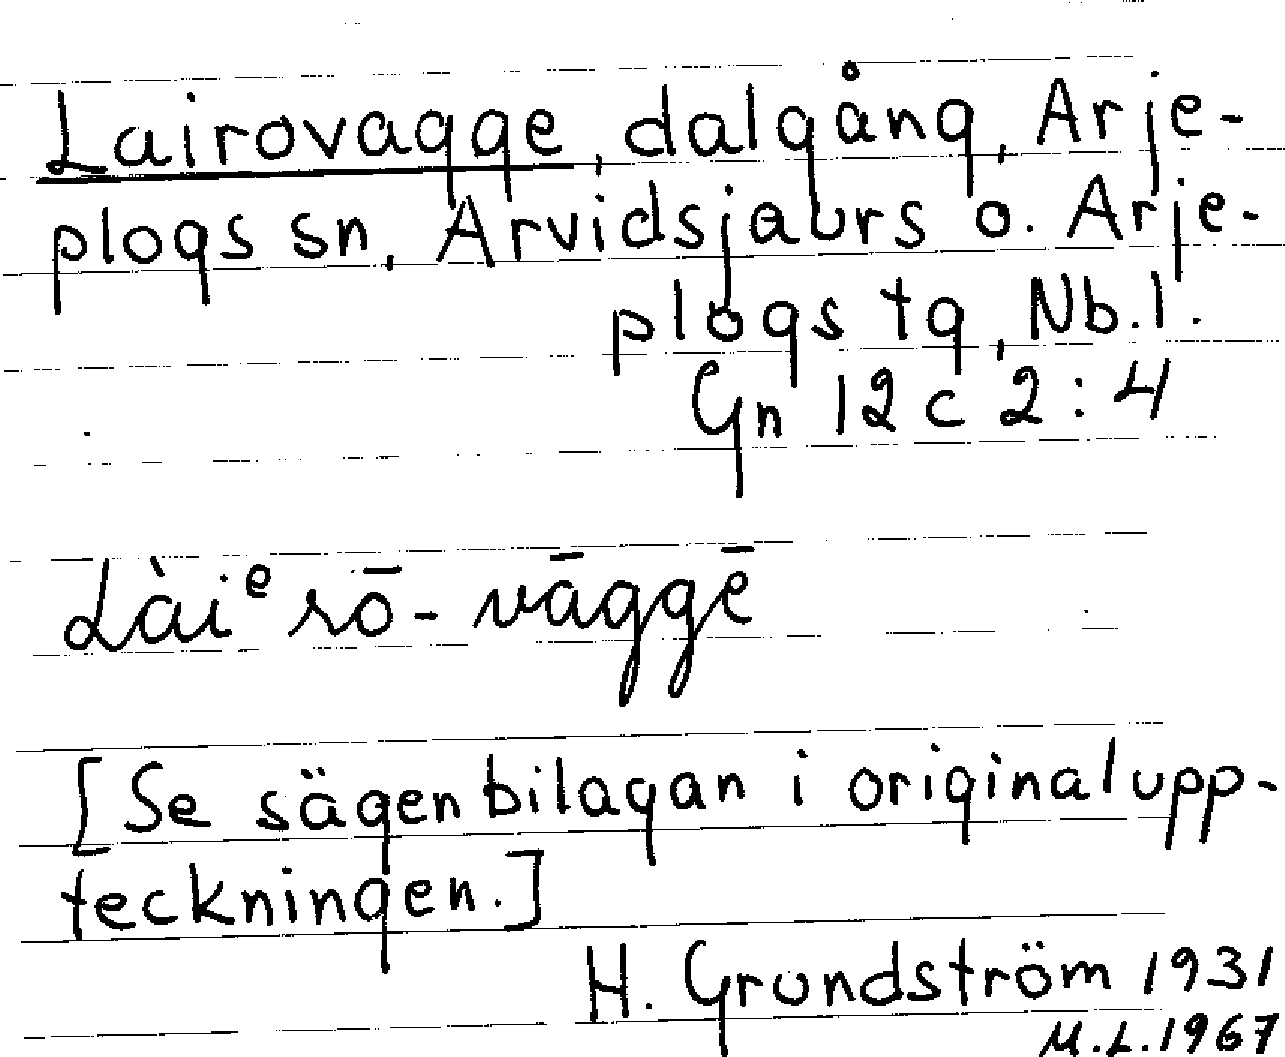 Lairovagge, dalgång, Arje-
plogs sn, Arvidsjaurs o. Arje-
plogs tg, Nb.l.
Gn 12 c 2:4
Làiᵉrō-vāggē
[Se sägenbilagan i originalupp-
teckningen.]
H. Grundström 1931
M.L. 1967